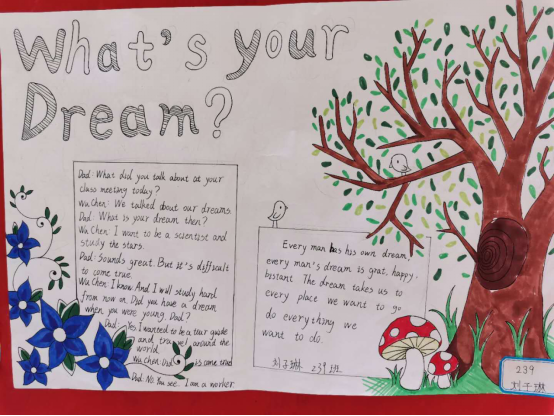 What's your
Dream?
Dad: What did you talk about at your
class meeting today?
Wu Chen: We talked about our dreams.
Dad: What is your dream then?
Wu Chen: I want to be a scientist and
study the stars.
Dad: Sounds great. But it's difficult
to come true.
Wu Chen: I know. And I will study hard
from now on. Did you have a dream
when you were young, Dad?
Dad: Yes I wanted to be a tour guide
and travel around the
world.
Wu Chen: Did is come true
Dad: No You see. I am a worker
Every man has his own dream,
every man's dream is grat, happy.
bistant The dream takes us to
every place we want to go
do everything we
want to do.
刘子琳 239班
239
刘子琳